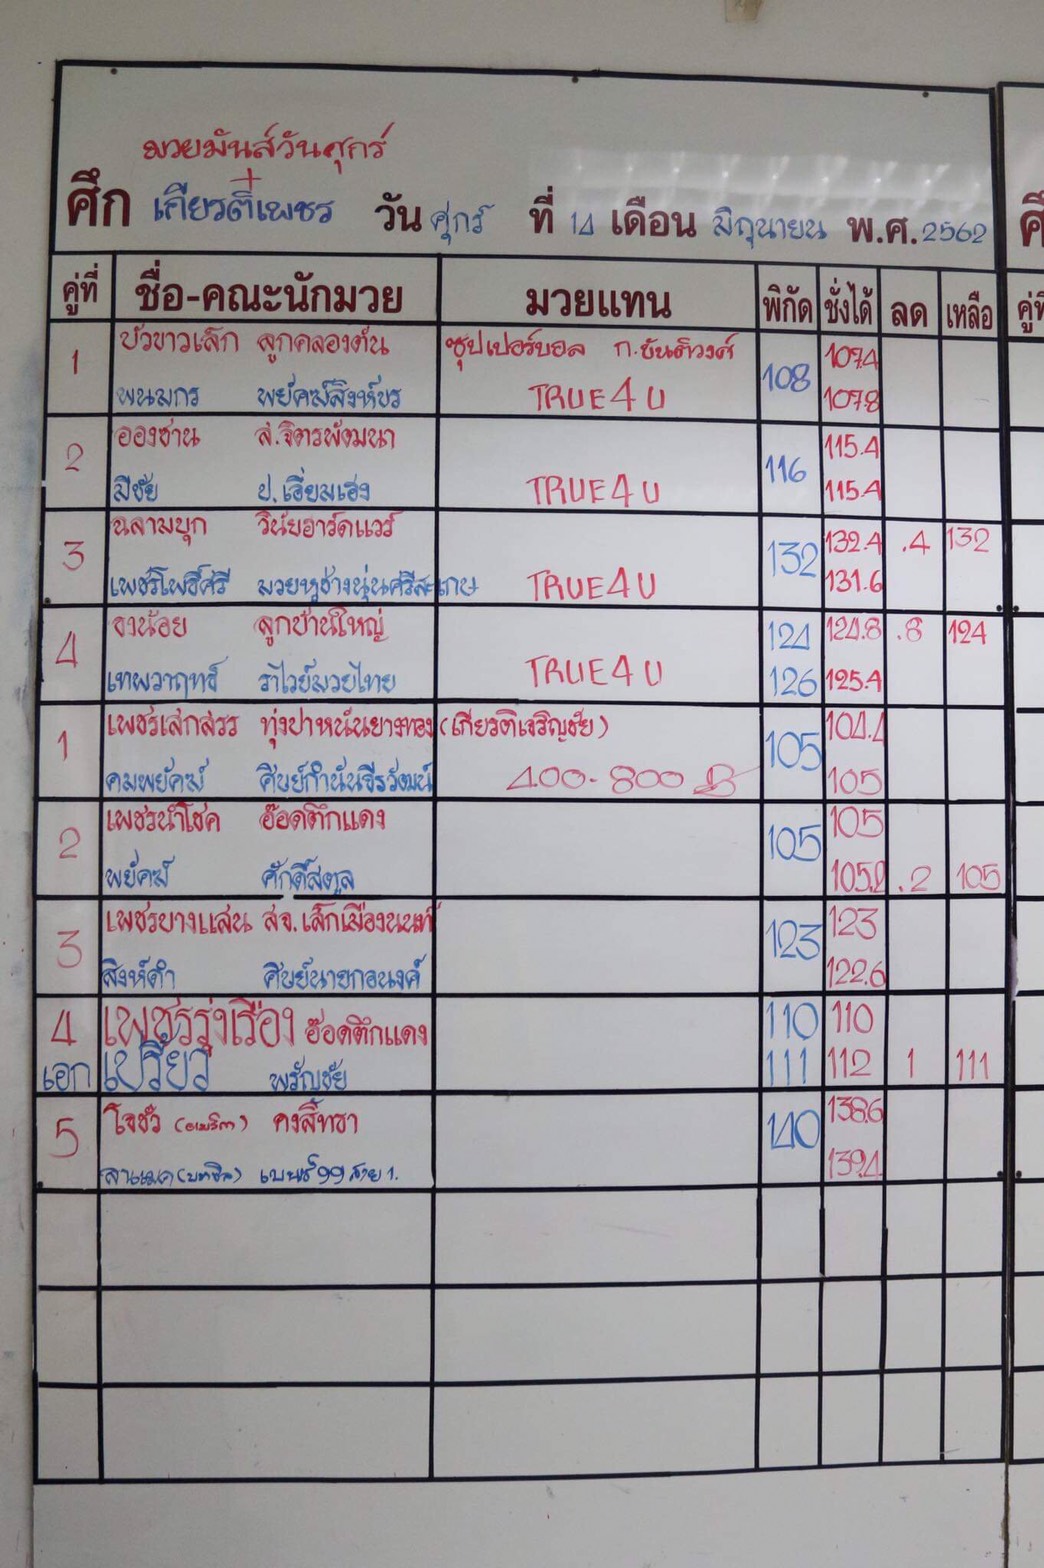 มวยมันส์วันศุกร์
+
ศึก เกียรติเพชร วัน ศุกร์ ที่ 14 เดือน มิถุนายน พ.ศ. 2562
คู่ที่ ชื่อ-คณะนักมวย มวยแทน พิกัด ชั่งได้ ลด เหลือ
1 บัวขาวเล็ก ลูกคลองตัน ซุปเปอร์บอล ก.ขันติวงศ์ 108 107.4
พนมกร พยัคฆ์สิงห์ขร TRUE4U 107.8
2 อองชาน ส.จิตรพัฒนา 116 115.4
มีชัย ป.เอี่ยมเฮง TRUE4U 115.4
3 ฉลามบุก วินัยฮาร์ดแวร์ 132 132.4 .4 132
เพชรโพธิ์ศรี มวยหูช้างหุ่นศรีสะเกษ TRUE4U 131.6
4 งาน้อย ลูกบ้านใหญ่ 124 124.8 .8 124
เทพวาฤทธิ์ ราไวย์มวยไทย TRUE4U 126 125.4
1 เพชรเสกสรร ทุ่งป่าหนันยางทอง (เกียรติเจริญชัย) 105 104.4
คมพยัคฆ์ ศิษย์กำนันจีรวัฒน์ 400-800 ฿ 105
2 เพชรนำโชค อ๊อดตึกแดง 105 105
พยัคฆ์ ศักดิ์สตูล 105.2 .2 105
3 เพชรบางแสน สจ.เล็กเมืองนนท์ 123 123
สิงห์ดำ ศิษย์นายกอนงค์ 122.6
4 เพชรรุ่งเรือง อ๊อดตึกแดง 110 110
เอก เปรียว พรัญชัย 111 112 1 111
5 โจชัว (อเมริกา) คงสิ้ทชา 140 138.6
(บราซิล) เบนซ์99สาย1. 139.4
ศึ
คู่ที่